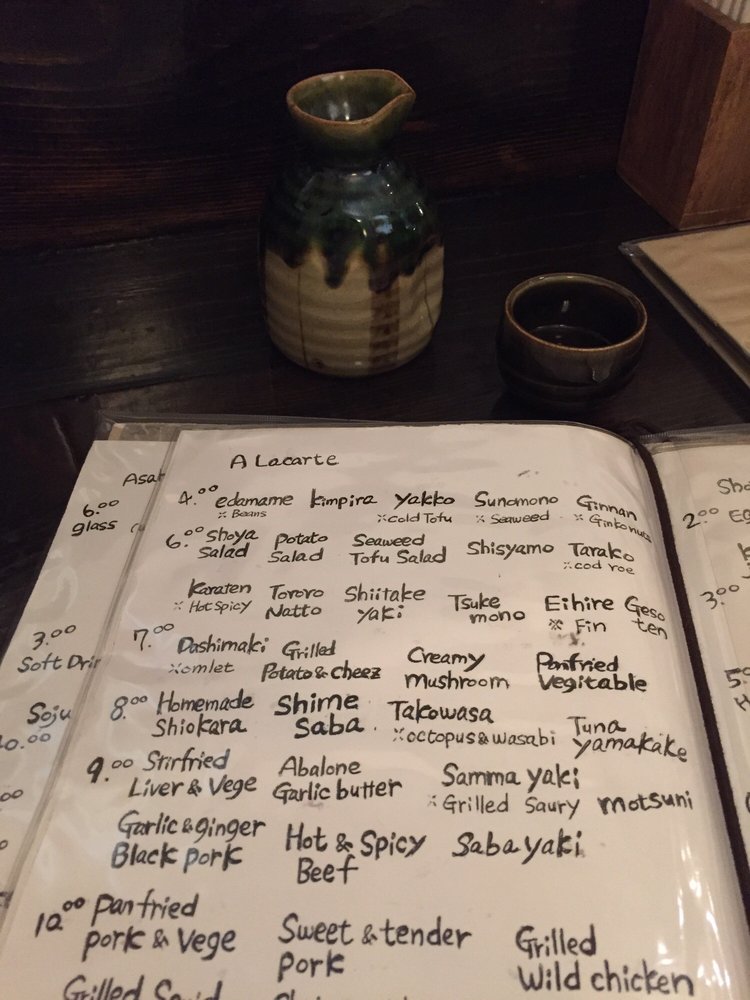 A Lacarte
4.00 edamame kimpira yakko Sunomono Ginnan
※Beans ※Cold Tofu ※Seaweed ※Ginkonuts
6.00 Shoya Potato Seaweed Shisyamo Tarako
Salad Salad Tofu Salad ※cod roe
Karaten Tororo Shiitake Tsuke Eihire Geso
※Hot Spicy Natto yaki mono ※Fin ten
7.00 Dashimaki Grilled Creamy Panfried
※omlet Potato & cheez mushroom Vegitable
8.00 Homemade Shime Takowasa Tuna
Shiokara Saba ※octopus & wasabi yamakake
9.00 Stirfried Abalone Samma yaki
Liver & Vege Garlic butter ※Grilled Saury motsuni
Garlic & ginger Hot & Spicy Saba yaki
Black pork Beef
10.00 panfried Sweet & tender Grilled
pork & Vege pork Wild chicken
Grilled Squid
6.00
glass
3.00
Soft Drin
Soju
2.00
3.00